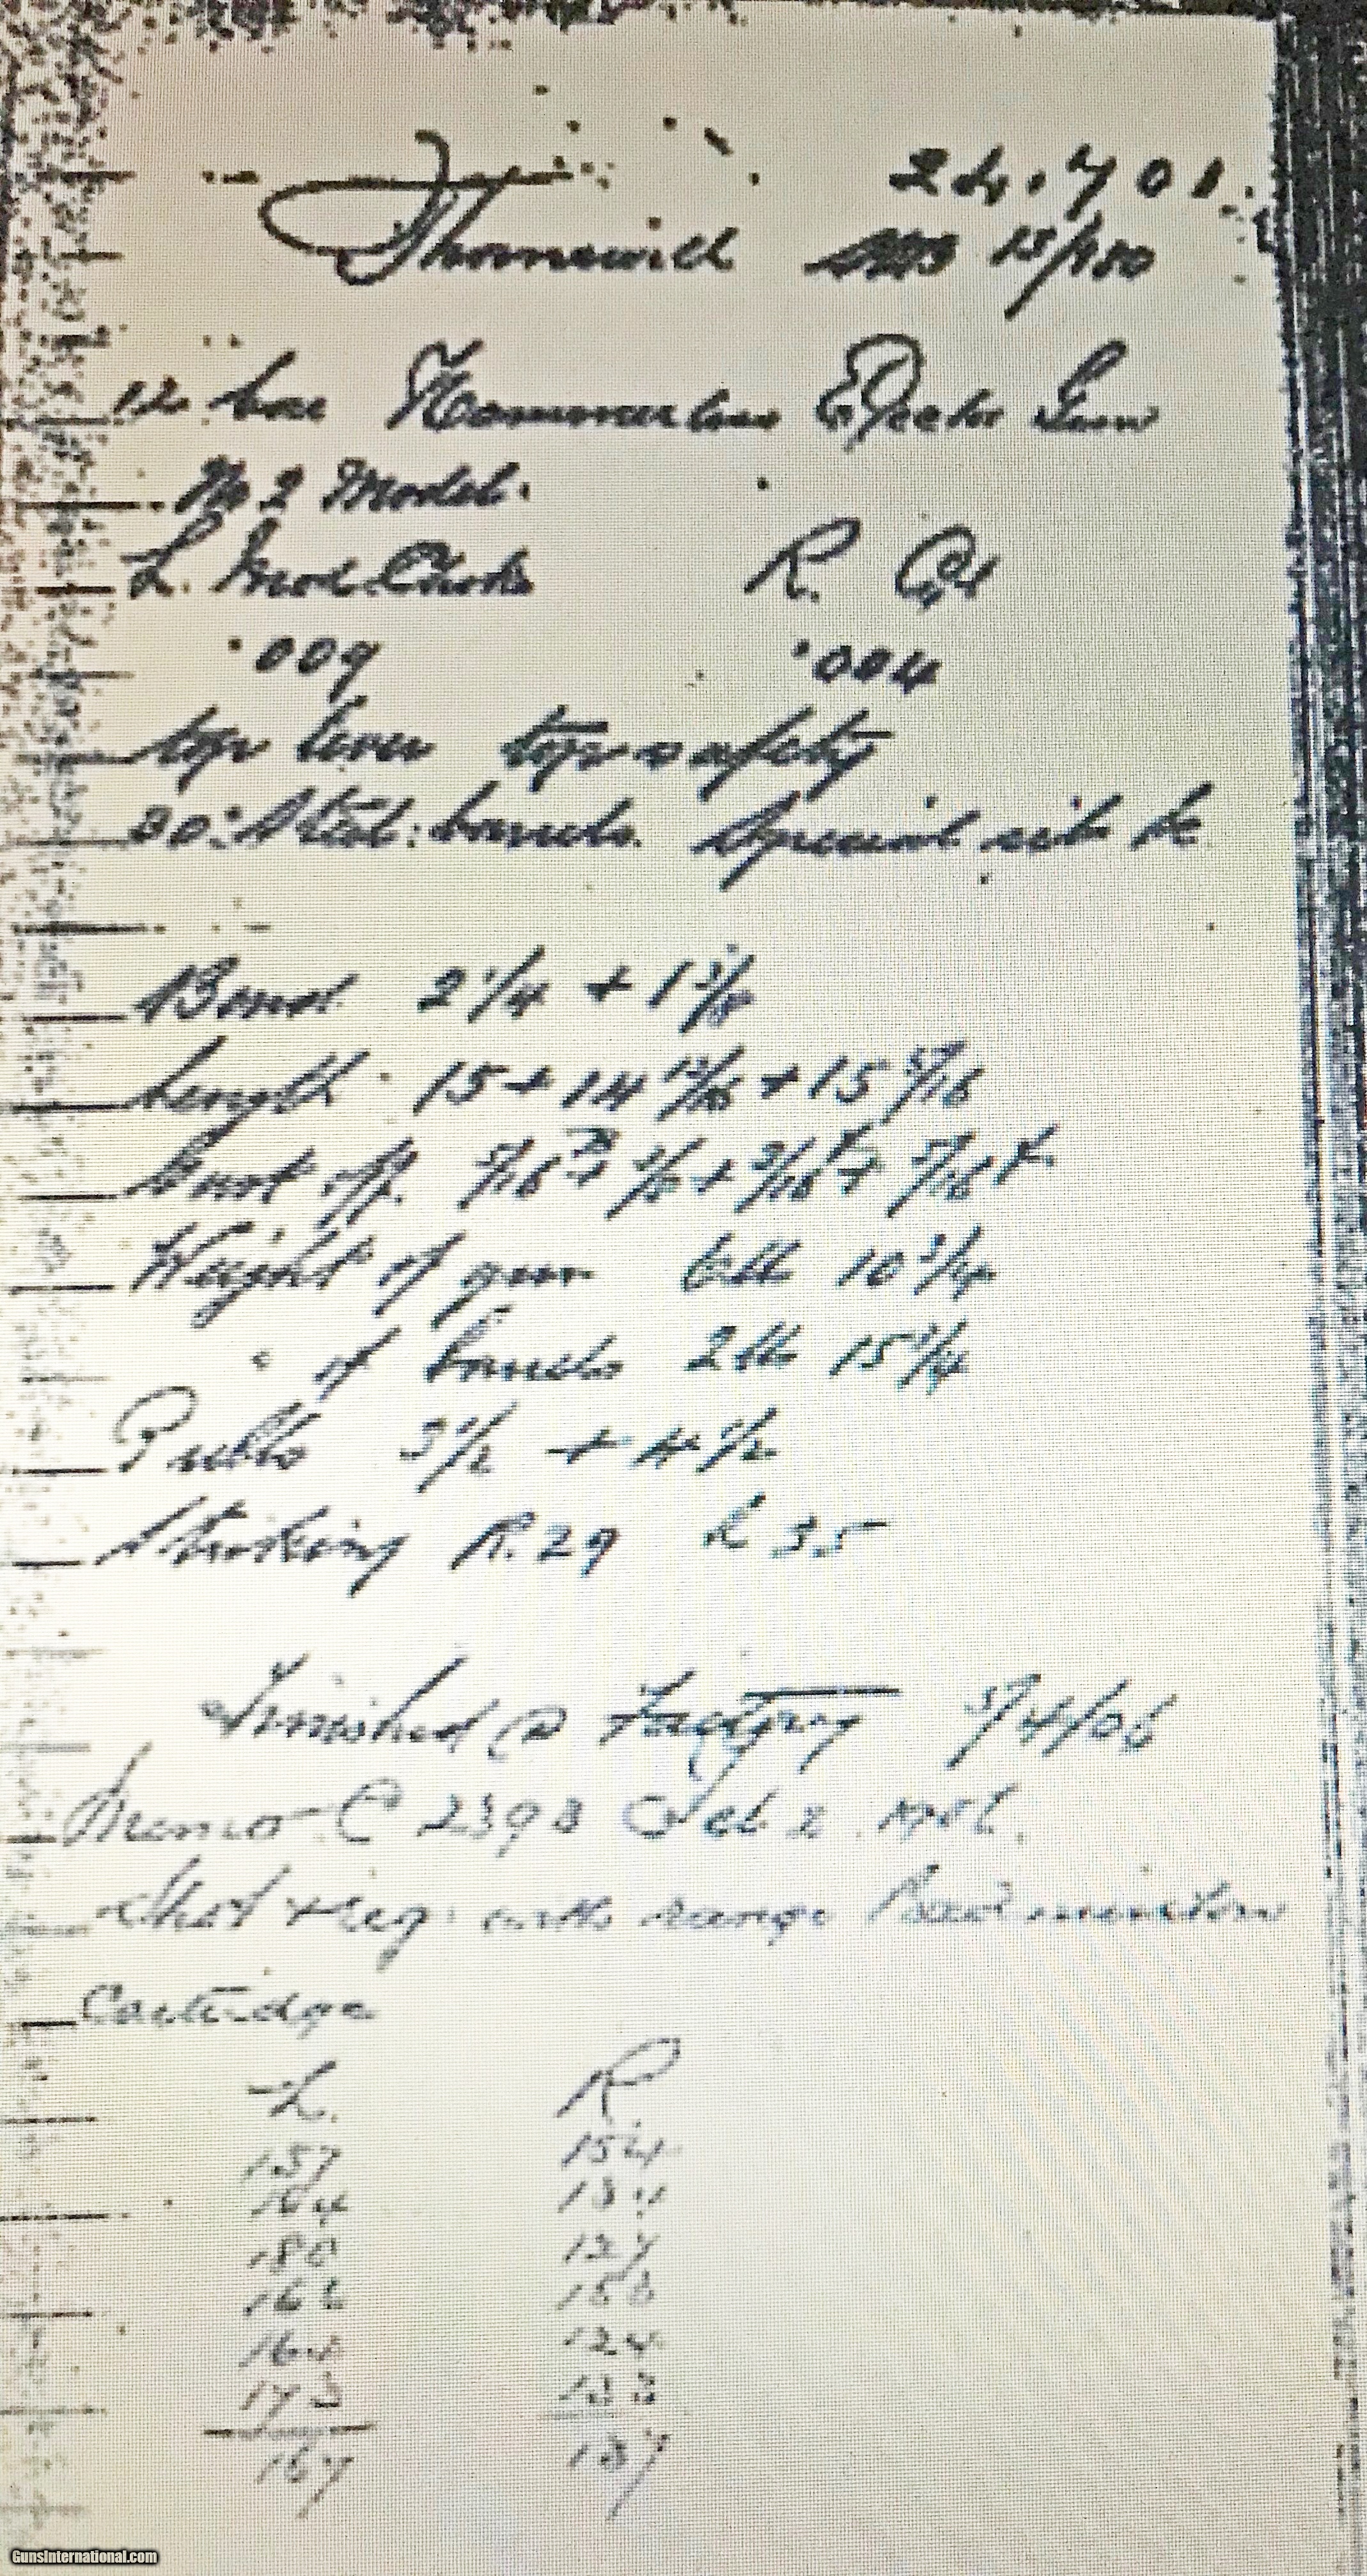 24.701.
Thornewill 15/180
12 bore Hammerless Ejector Gun
No 2 Model.
L. Mod. Choke R. Cyl
.009 .004
top lever top safety
30" Steel barrels. Special rib
Bend 2 1/4 + 1 3/8
Length 15 + 14 13/16 + 15 5/16
Cast off 5/16
Weight of gun 6 lb 10 3/4
" of barrels 2 lb 15 3/4
Pulls 3 1/2 + 4 1/2
Striking R. 29 L 35
Finished @ Factory 5/4/06
Memo C 2393
Shot + reg with range Badminton
Cartridge
L. R
157 154
164 134
180 127
162
164 124
173 133
167 137
GunsInternational.com